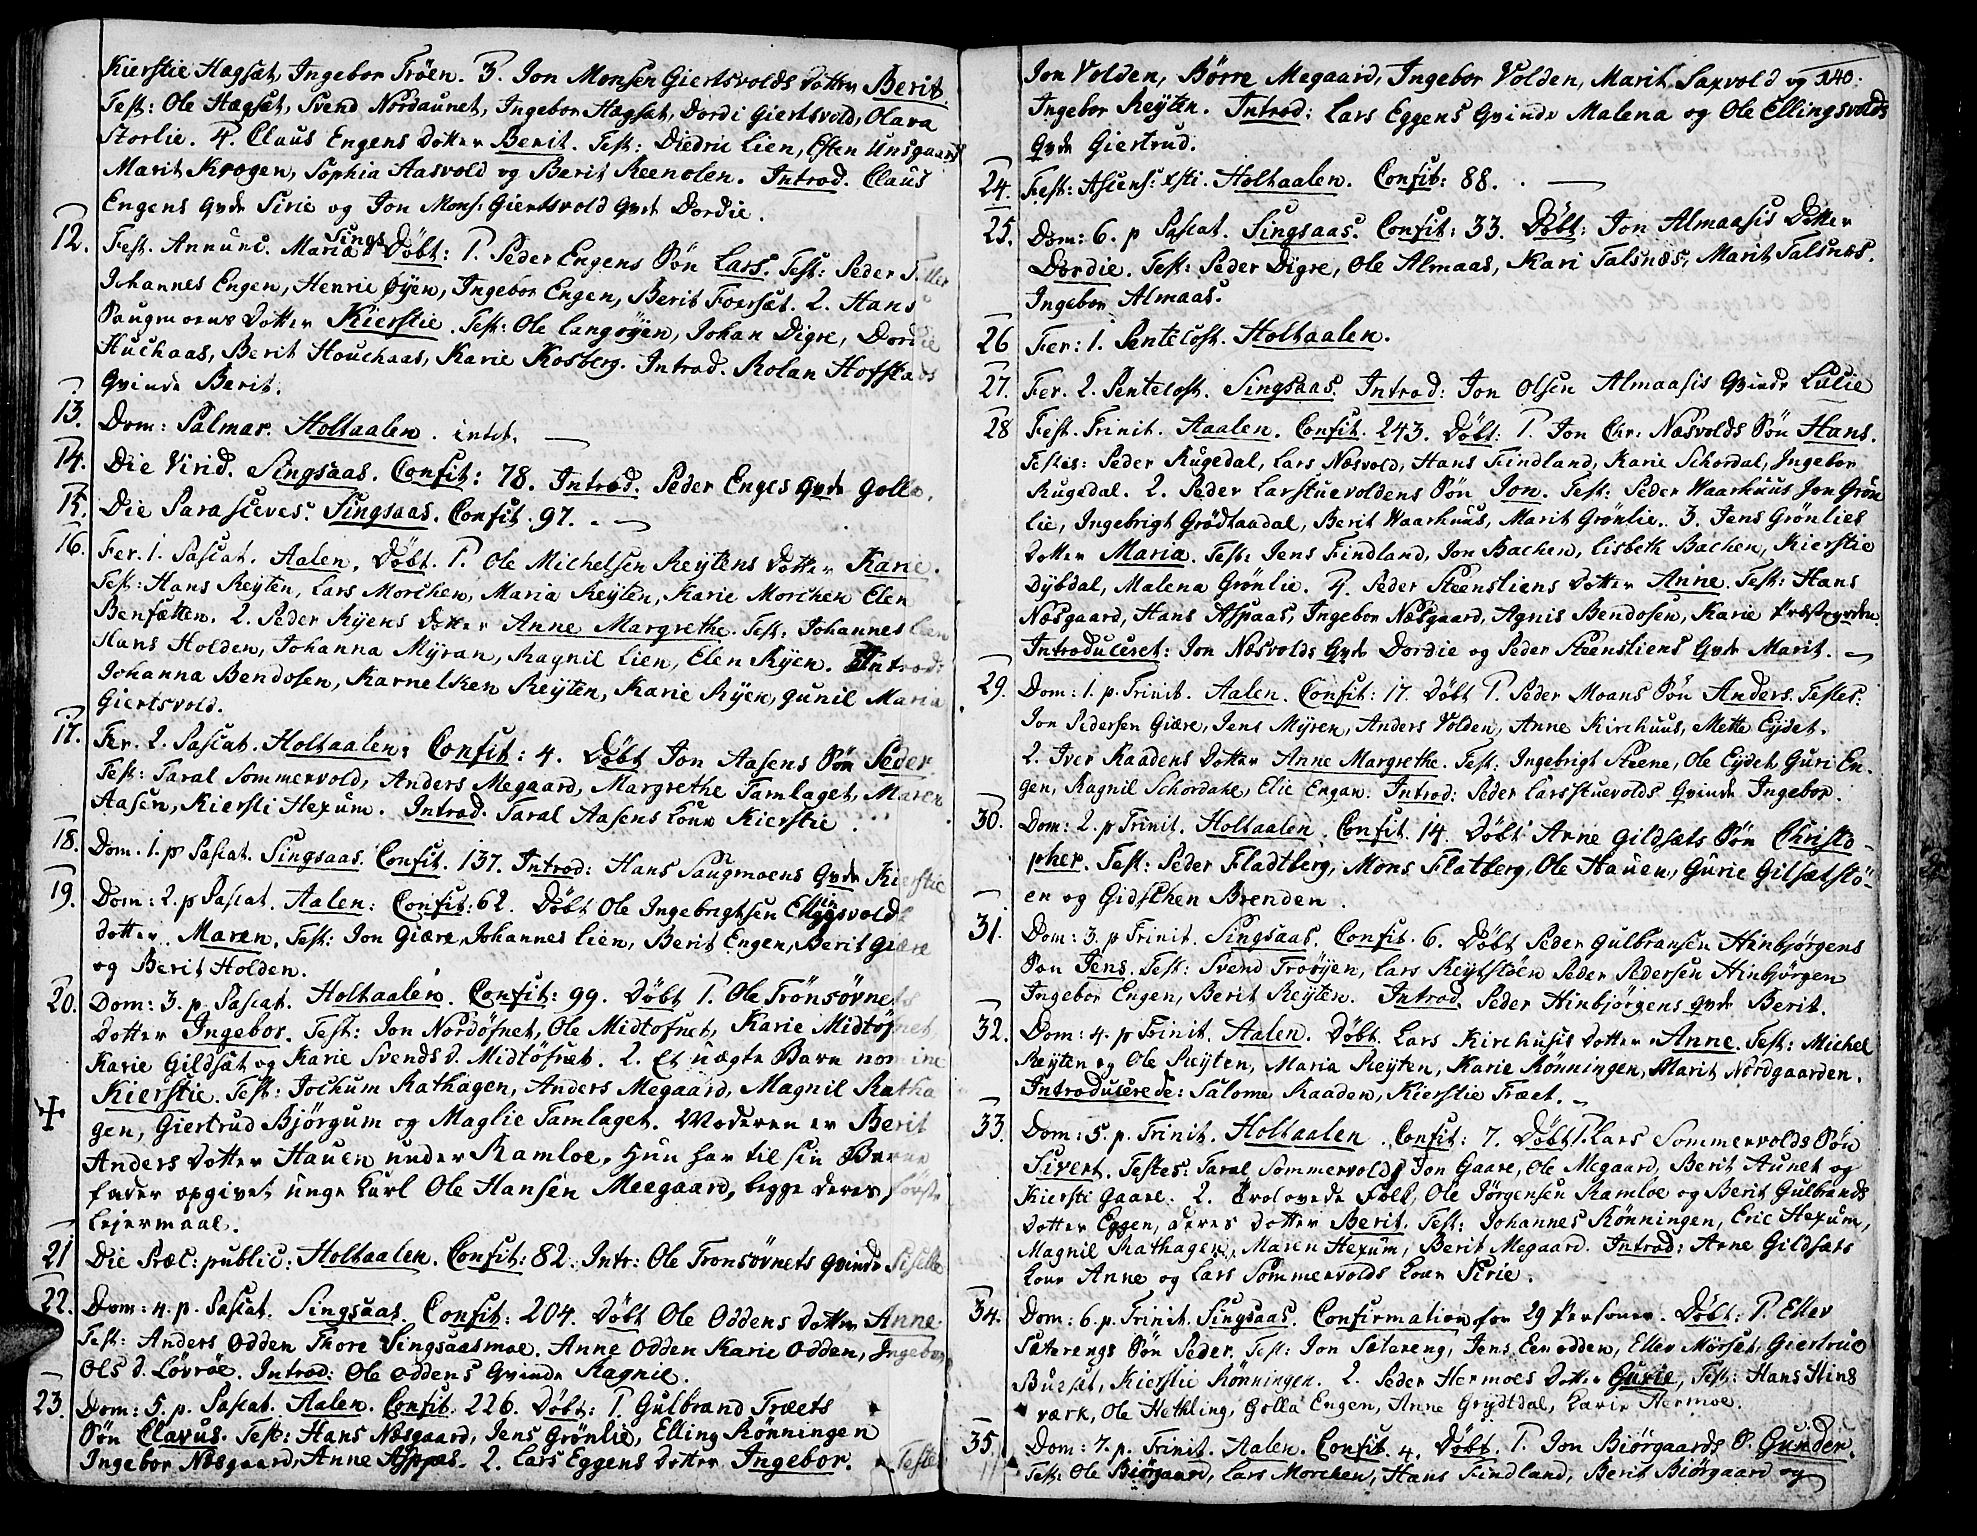 Kierstie Hagsæt, Ingebor Trøen. 3. Jon Monsen Giertsvolds dotter Berit.
Test: Ole Hagsæt, Svend Nordaunet, Ingebor Hagsæt, Dordi Giertsvold, Olava
Storlie. 4. Claus Engens dotter Berit. Test: Diedric Lien, Esten Unsgaard
Marit Krogen, Sophia Aasvold og Berit Reenolen. Introd. Claus
Engens qvde Sirie og Jon Mons: Giertsvold qvde Dordie.
12. Fest. Annunc. Mariæ Sings Døbt: 1. Peder Engens Søn Lars. Test: Peder
Johannes Engen, Henric Øÿen, Ingebor Engen, Berit Foersæt. 2. Hans
Saugmoens dotter Kierstie. Test: Ole Langøÿen, Johan Digre, Dordie
Huchaas, Berit Houchaas, Karie Kosberg. Introd. Rolan Hofstads
Qvinde Berit.
13. Dom: Palmar. Holtaalen. intet.
14. Die Virid. Singsaas. Confit: 78. Introd. Peder Enges qvde Golla.
15. Die Parasceves. Singsaas. Confit. 97.
16. Fer. 1. Pascat. Aalen. Døbt. 1. Ole Michelsen Reÿtens dotter Karie.
Test: Hans Reÿten, Lars Morchen, Maria Reÿten, Karie Morchen Elen
Bensætten. 2. Peder Rÿens dotter Anne Margrethe. Test: Johannes Lien
Hans Holden, Johanna Mÿran, Ragnil Lien, Elen Rÿen. Introd:
Johanna Bendosen, Karnelken Reÿten, Karie Rÿen, Gunil Maria
Giertsvold.
17. Fer. 2. Pascat. Holtaalen. Confit: 4. Døbt Jon Aasens Søn Peder
Test: Taral Sommervold, Anders Megaard, Margrethe Tamlaget, Maren
Aasen, Kiersti Hexum. Introd. Taral Aasens Kone Kierstie.
18. Dom. 1. p Pascat. Singsaas. Confit. 137. Introd: Hans Saugmoens Qvde Kierstie
19. Dom: 2. p Pascat. Aalen. Confit: 62. Døbt Ole Ingebrigtsen Ellingsvolds
dotter Maren. Test: Jon Giære, Johannes Lien, Berit Engen, Berit Giære
og Berit Holden.
20. Dom: 3. p. Pascat. Holtaalen. Confit: 99. Døbt 1. Ole Trønsøvnets
dotter Ingebor. Test: Jon Nordøfnet, Ole Midtøfnet, Karie Midtøfnet
Karie Gildsæt og Karie Svends d. Midtøfnet. 2. Et uægte Barn nomine
Kierstie. Test: Jochum Rathagen, Anders Megaard, Magnil Ratha
gen, Giertrud Bjørgum og Maglie Tamlaget. Moderen er Berit
Anders dotter Hauen under Ramloe. Hun har til sin Barne
fader opgivet unge Karl Ole Hansen Meegaard, begge deres første
Leiermaal.
21 Die Præc: public: Holtaalen. Confit: 82. Intr: Ole Tronsøvnets qvinde Siselle
22. Dom: 4. p. Pascat. Singsaas. Confit: 204. Døbt Ole Oddens dotter Anne.
Test: Anders Odden Thore Singsaasmoe. Anne Odden Karie Odden, Ingebor
Ols d. Løvrøe. Introd: Ole Oddens Qvinde Ragnil.
23. Dom: 5. p. Pascat. Aalen. Confit. 226. Døbt: 1. Gulbrand Træets
Søn Clavus. Test: Hans Næsgaard, Jens Grønlie, Elling Rønningen
Ingebor Næsgaard, Anne Aspaas. 2. Lars Eggens dotter Ingebor. Teste
140.
Jon Volden, Børre Megaard, Ingebor Volden, Marit Saxvold og
Ingebor Reÿten. Introd: Lars Eggens Qvinde Malena og Ole Ellingsvolds
Qvde Giertrud.
24. Fest: Ascens: Xsti. Holtaalen. Confit: 88.
25. Dom: 6. p Pascat. Singsaas. Confit: 33. Døbt: Jon Almaasis Dotter
Dordie. Test: Peder Digre, Ole Almaas, Kari Talsnæs, Marit Talsnæs.
Ingebor Almaas.
26 Fer: 1. Pentecost. Holtaalen.
27. Fer. 2. Pentecost. Singsaas. Introd: Jon Olsen Almaasis Qvinde Lucie
28 Fest. Trinit. Aaalen. Confit. 243. Døbt: 1. Jon Chr. Næsvolds Søn Hans.
Testes: Peder Rugedal, Lars Næsvold, Hans Findland, Karie Schordal, Ingebor
Rugedal. 2. Peder Larstuevoldens Søn Jon. Test: Peder Waarhuus Jon Grøn
lie, Ingebrigt Grødtaadal, Berit Waarhuus, Marit Grønlie. 3. Jens Grønlies
dotter Maria. Test: Jens Findland, Jon Bachen, Lisbeth Bachen, Kierstie
Dÿbdal, Malena Grønlie. 4. Peder Steensliens dotter Anne. Test: Hans
Næsgaard, Hans Aspaas, Ingebor Næsgaard, Agnis Bendosen, Karie Præstegorden.
Introduceret: Jon Næsvolds Qvde Dordie og Peder Steensliens Qvde Marit.
29. Dom: 1. p. Trinit. Aalen. Confit: 17. Døbt 1. Peder Moans Søn Anders. Testes:
Jon Pedersen Giære, Jens Mÿren, Anders Volden, Anne Kirchuus, Mette Eÿdet.
2. Iver Raadens dotter Anne Margrethe. Test. Ingebrigt Steene, Ole Eÿdet, Guri En-
gen, Ragnil Schordahl, Elie Engan. Introd: Peder Larsstuevolds Qvinde Ingebor.
30. Dom: 2. p Trinit. Holtaalen. Confit. 14. Døbt Arne Gildsæts Søn Christo-
pher. Test: Peder Fladtberg, Mons Flatberg, Ole Hauen, Gurie Gilsætstø-
en og Gidschen Brenden.
31. Dom: 3. p Trinit. Singsaas. Confit. 6. Døbt Peder Gulbransen Hinbjørgens
Søn Jens. Test: Svend Troøÿen, Lars Reÿtstøen Peder Pedersen Hinbjørgen
Ingebor Engen, Berit Reÿten. Introd. Peder Hinbjørgens qvde Berit.
32. Dom: 4. p Trinit. Aalen. Døbt. Lars Kirchusis dotter Anne. Test: Michel
Reÿten og Ole Reÿten, Maria Reÿten, Karie Rønningen, Marit Nordgaarden.
Introducerede: Salome Raaden, Kierstie Træet.
33. Dom: 5. p. Trinit. Holtaalen. Confit: 7. Døbt 1. Lars Sommervolds Søn
Sivert. Testes: Taral Sommervold, Jon Gaare, Ole Megaard, Berit Aunet og
Kiersti Gaare. 2. Trolovede Folk, Ole Jørgensen Ramloe og Berit Gulbrands
dotter Eggen, deres dotter Berit. Test: Johannes Rønningen, Eric Hexum,
Magnil Rathagen, Maren Hexum, Berit Megaard. Introd: Arne Gildsæts
kone Anne og Lars Sommervolds kone Sirie.
34. Dom: 6. p. Trinit. Singsaas. Confirmation for 29 Personer. Døbt: 1. Eller
Sæterengs Søn Peder. Test: Jon Sætereng, Jens Eenodden, Eller Mørset, Giertrud
Buesæt, Kierstie Rønningen. 2. Peder Hermoes dotter Gurie, Test: Hans Hind
værk, Ole Hethling, Golla Engen, Anne Grÿdtdal, Karie Hermoe.
35. Dom: 7. p. Trinit. Aalen. Confit. 4. Døbt. 1. Jon Biørgaards S. Gunder.
Test: Ole Biørgaard, Lars Morchen, Hans Findland, Berit Biørgaard og